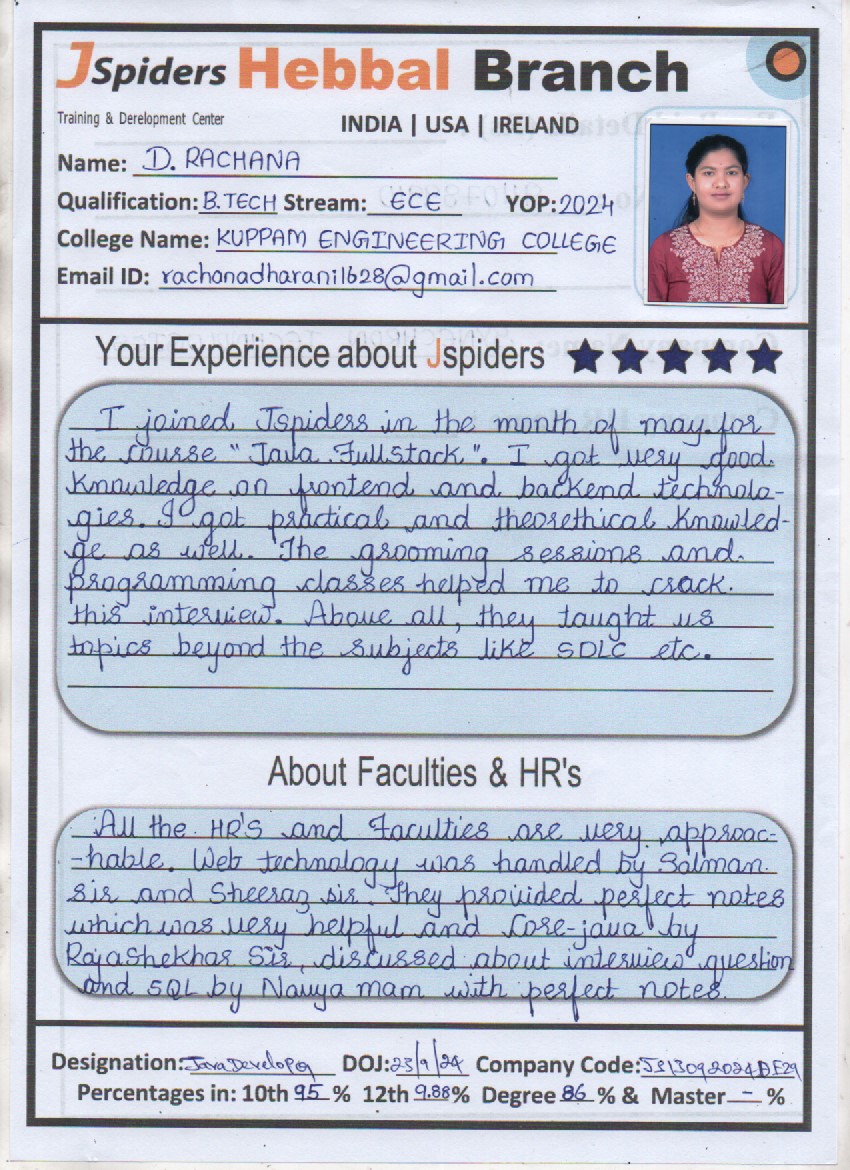 JSpiders Hebbal Branch
Training & Derelopment Center
INDIA | USA | IRELAND
Name: D. RACHANA
Qualification: B.TECH Stream: ECE YOP: 2024
College Name: KUPPAM ENGINEERING COLLEGE
Email ID: rachanadharani1628@gmail.com
Your Experience about Jspiders
I joined Jspiders in the month of may for
the course "Java Fullstack". I got very good
knowledge on frontend and backend technolo-
gies. I got practical and theorethical knowled-
ge as well. The grooming sessions and
programming classes helped me to crack
this interview. Above all, they taught us
topics beyond the subjects like SDLC etc.
About Faculties & HR's
All the HR'S and Faculties are very approac-
-hable. Web technology was handled by Salman
sir and Sheeraz sir. They provided perfect notes
which was very helpful and Core-java by
RajaShekhar Sir, discussed about interview question
and SQL by Navya mam with perfect notes.
Designation: Java Developer DOJ: 23/9/24 Company Code:
Percentages in: 10th 95 % 12th 9.88% Degree 86 % & Master - %